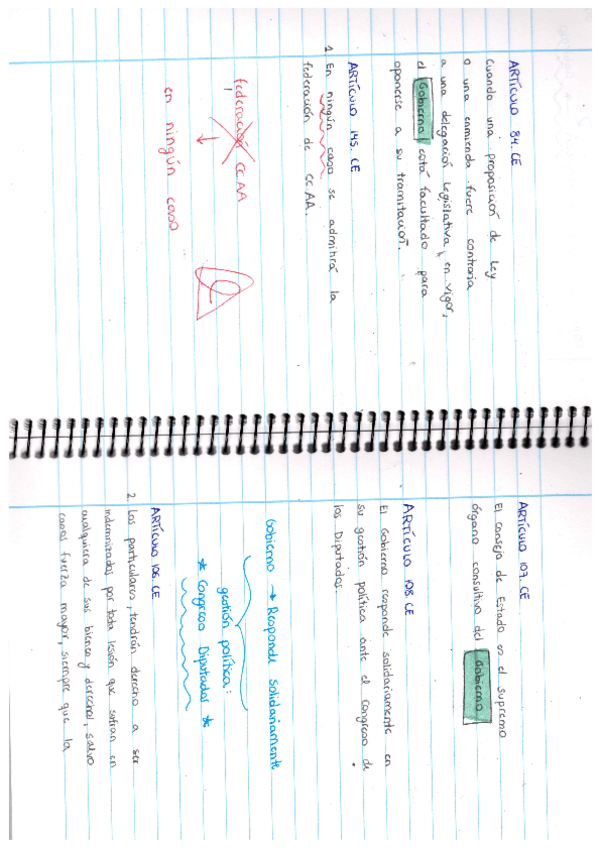 ARTÍCULO 84. CE
Cuando una proposición de Ley
o una enmienda fuere contraria
a una delegación legislativa en vigor,
el Gobierno está facultado para
oponerse a su tramitación.
ARTÍCULO 145. CE
1. En ningún caso se admitirá la
federación de CC AA.
federación CC AA
en ningún caso
ARTÍCULO 107. CE
El Consejo de Estado es el supremo
órgano consultivo del Gobierno
ARTÍCULO 108. CE
El Gobierno responde solidariamente en
su gestión política ante el Congreso de
los Diputados.
Gobierno → Responde solidariamente
gestión política:
* Congreso Diputados *
ARTÍCULO 106. CE
2. Los particulares, tendrán derecho a ser
indemnizados por toda lesión que sufran en
cualquiera de sus bienes y derechos, salvo
casos fuerza mayor, siempre que la